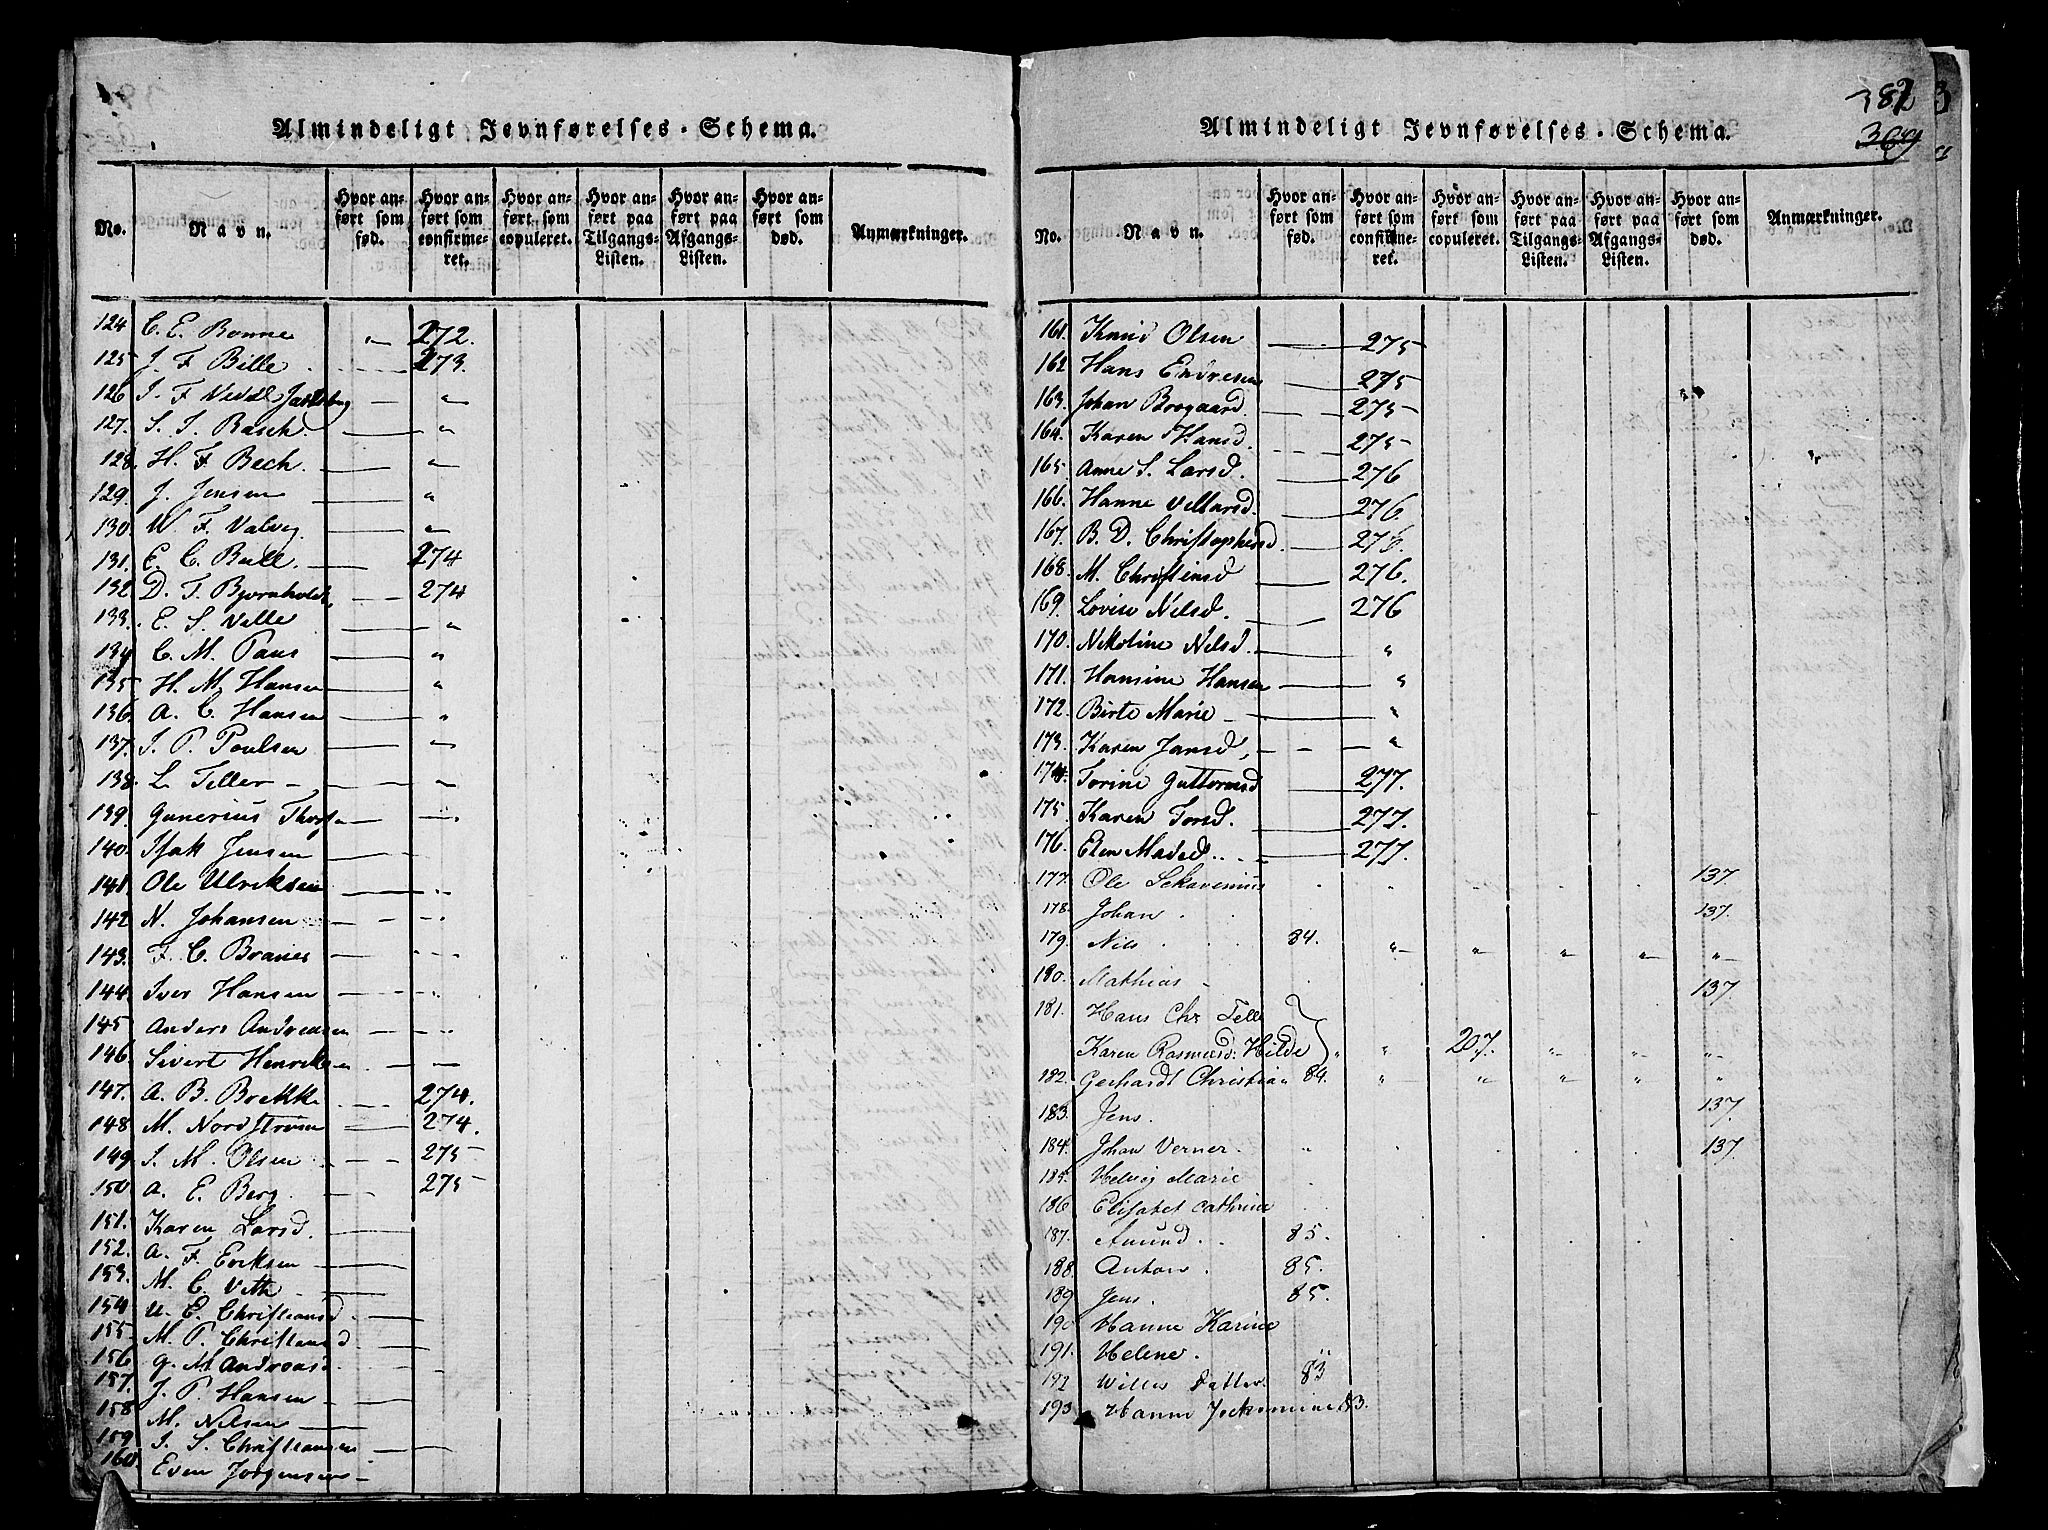 Almindeligt Jevnførelses-Schema.
No. Navn. Hvor anført som fød. Hvor anført som confirmeret. Hvor anført som copuleret. Hvor anført paa Tilgangs-Listen. Hvor anført paa Afgangs-Listen. Hvor anført som død. Anmærkninger.
124 C. E. Bonne " 272.
125 J. F. Bille 273.
126 J. F. Vedel Jarlsberg "
127. S. J. Rasch. "
128. H. F. Bech. "
129. J. Jensen "
130. W. F. Valvig "
131. E. C. Bull. 274
132. D. F. Bjørnholdt 274
133. E. S. Velle "
134 C. M. Paus "
135 H. M. Hansen "
136. A. C. Hansen "
137. J. P. Poulsen "
138. L. Teller "
139. Gunerius Thors "
140. Isak Jensen
141. Ole Ulriksen "
142 N. Johansen "
143. F. C. Branes
144. Iver Hansen "
145 Anders Andreasen "
146. Sivert Henriksen
147. A. B. Brekke 274.
148 M. Nordstrøm 274.
149 S. M. Olsen 275
150 A. E. Berg. 275
151. Karen Larsd.
152. A. F. Eriksen
153. M. C. Veth
154 U. E. Christiansd
155. M. P. Christiansd
156. G. M. Andreasd
157. J. P. Hansen
158. M. Nilsen
159 J. S. Christiansen
160 Even Jørgensen
387
369
Almindeligt Jevnførelses-Schema.
No. Navn. Hvor anført som fød. Hvor anført som confirmeret. Hvor anført som copuleret. Hvor anført paa Tilgangs-Listen. Hvor anført paa Afgangs-Listen. Hvor anført som død. Anmærkninger.
161. Knud Olsen 275
162 Hans Endresen 275
163. Johan Borgaard 275
164. Karen Hansd. 275
165 Anne S. Larsd. 276
166. Hanne Vettarsd. 276.
167. B. D. Christophersd. 276.
168. M. Christensd 276.
169. Lovise Nilsd. 276
170. Nikoline Nilsd. "
171. Hansine Hansen "
172. Birte Marie "
173. Karen Jansd, "
174. Torine Guttormsd 277.
175. Karen Torsd. 277.
176. Elen Madsd. 277.
177. Ole Schavenius 137.
178. Johan. 137.
179. Nils. 84. " " " " "
180. Mathias 137
181. Hans Chr Telle
Karen Rasmusd: Hilde " " 207. " " "
182. Gerhardt Christian 84. " " " " "
183. Jens. 137.
184. Johan Verner. " 137.
185. Helvig Marie
186 Elisabet Cathrine
187. Amund. 85.
188. Anton. 85.
189 Jens. 85.
190 Hanne Karine
191. Helene.
192 Willes Datter. 83
193 Hanne Jockomine 83.